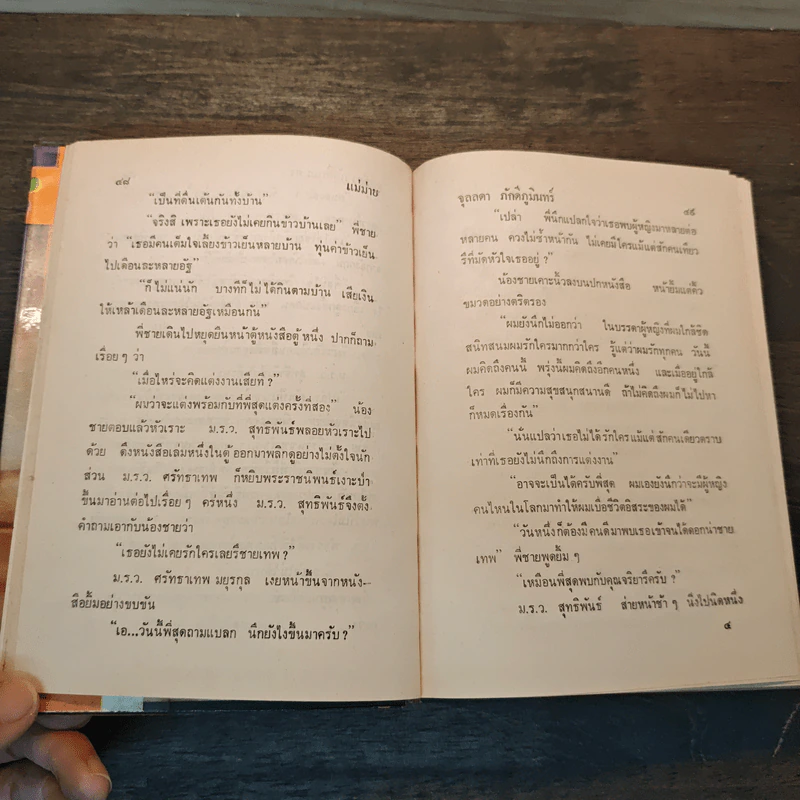 ๔๘
แม่ม่าย
"เป็นที่ตื่นเต้นกันทั้งบ้าน"
"จริงสิ เพราะเธอยังไม่เคยกินข้าวบ้านเลย" พี่ชาย
ว่า "เธอมีคนเต็มใจเลี้ยงข้าวเย็นหลายบ้าน ทุ่นค่าข้าวเย็น
ไปเดือนละหลายอัฐ"
"ก็ไม่แน่นัก บางทีก็ไม่ได้กินตามบ้าน เสียเงิน
ให้เหล้าเดือนละหลายอัฐเหมือนกัน"
พี่ชายเดินไปหยุดยืนหน้าตู้หนังสือตู้หนึ่ง ปากก็ถาม
เรื่อยๆ ว่า
"เมื่อไหร่จะคิดแต่งงานเสียที ?"
"ผมว่าจะแต่งพร้อมกับที่พี่สุดแต่งครั้งที่สอง" น้อง
ชายตอบแล้วหัวเราะ ม.ร.ว. สุทธิพันธ์พลอยหัวเราะไป
ด้วย ดึงหนังสือเล่มหนึ่งในตู้ออกมาพลิกดูอย่างไม่ตั้งใจนัก
ส่วน ม.ร.ว. ศรัทธาเทพ ก็หยิบพระราชนิพนธ์เงาะป่า
ขึ้นมาอ่านต่อไปเรื่อยๆ ครู่หนึ่ง ม.ร.ว. สุทธิพันธ์จึงตั้ง
คำถามเอากับน้องชายว่า
"เธอยังไม่เคยรักใครเลยรึชายเทพ ?"
ม.ร.ว. ศรัทธาเทพ มยุรกุล เงยหน้าขึ้นจากหนัง-
สือยิ้มอย่างขบขัน
"เอ...วันนี้พี่สุดถามแปลก นึกยังไงขึ้นมาครับ ?"
จุลลดา ภักดีภูมินทร์
๔๙
"เปล่า พี่นึกแปลกใจว่าเธอพบผู้หญิงมาหลายต่อ
หลายคน ควงไม่ซ้ำหน้ากัน ไม่เคยมีใครแม้แต่สักคนเดียว
รึที่มัดหัวใจเธออยู่ ?"
น้องชายเคาะนิ้วลงบนปกหนังสือ หน้ายิ้มแต่คิ้ว
ขมวดอย่างตริตรอง
"ผมยังนึกไม่ออกว่า ในบรรดาผู้หญิงที่ผมใกล้ชิด
สนิทสนมผมรักใครมากกว่าใคร รู้แต่ว่าผมรักทุกคน วันนี้
ผมคิดถึงคนนี้ พรุ่งนี้ผมคิดถึงอีกคนหนึ่ง และเมื่ออยู่ใกล้
ใคร ผมก็มีความสุขสนุกสนานดี ถ้าไม่คิดถึงผมก็ไม่ไปหา
ก็หมดเรื่องกัน"
"นั่นแปลว่าเธอไม่ได้รักใครแม้แต่สักคนเดียวตราบ
เท่าที่เธอยังไม่นึกถึงการแต่งงาน"
"อาจจะเป็นได้ครับพี่สุด ผมเองยังนึกว่าจะมีผู้หญิง
คนไหนในโลกมาทำให้ผมเบื่อชีวิตอิสระของผมได้"
"วันหนึ่งก็ต้องมีคนดีมาพบเธอเข้าจนได้ดอกน่าชาย
เทพ" พี่ชายพูดยิ้มๆ
"เหมือนพี่สุดพบกับคุณจริยารึครับ ?"
ม.ร.ว. สุทธิพันธ์ ส่ายหน้าช้าๆ นิ่งไปนิดหนึ่ง
๔